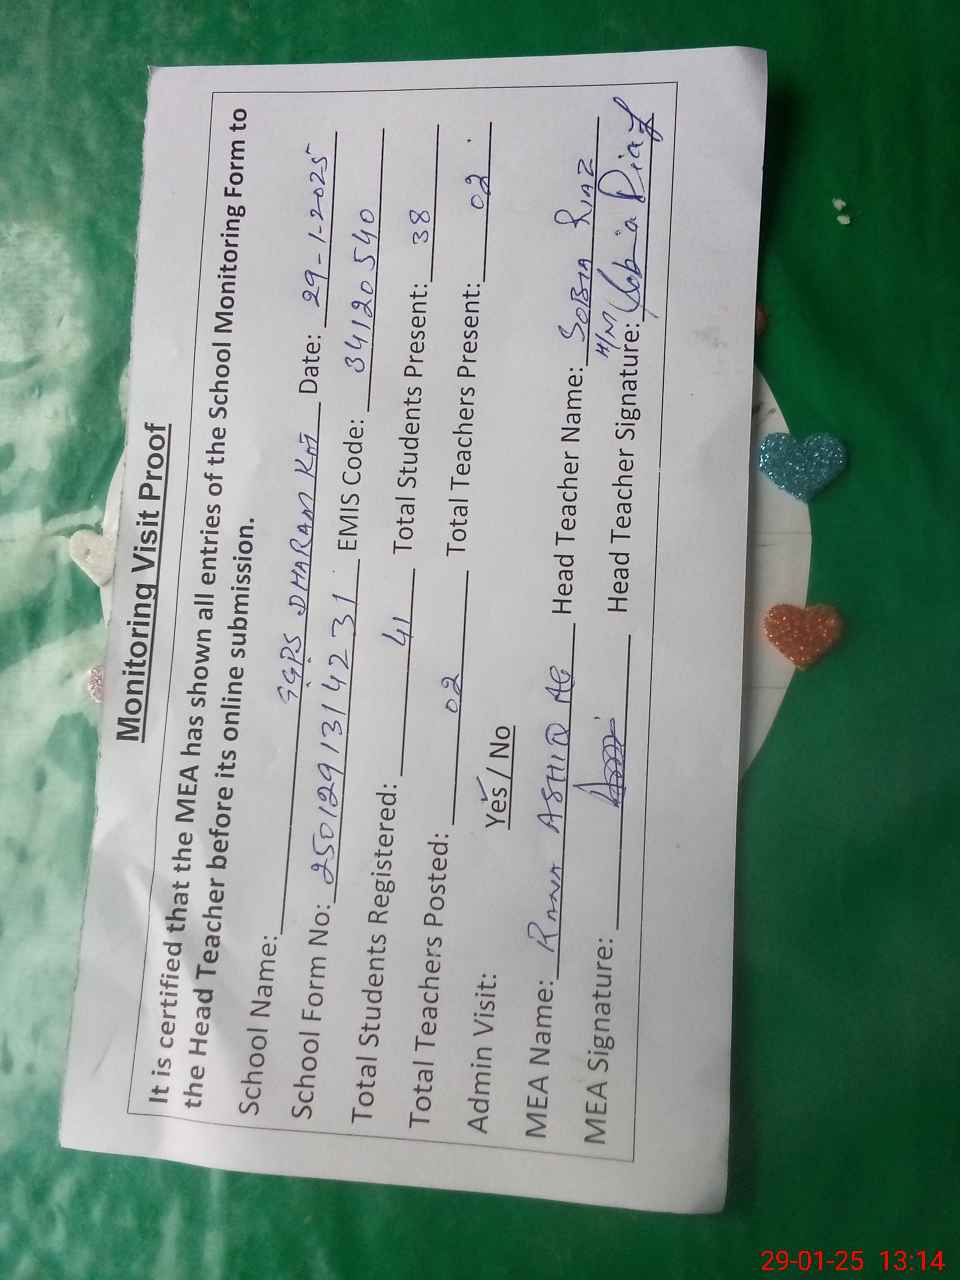 Monitoring Visit Proof
It is certified that the MEA has shown all entries of the School Monitoring Form to
the Head Teacher before its online submission.
School Name: GGPS DHARAM KOT Date: 29-1-2025
School Form No: 2501291314231 EMIS Code: 34120540
Total Students Registered: 41 Total Students Present: 38
Total Teachers Posted: 02 Total Teachers Present: 02
Admin Visit: Yes / No
MEA Name: RANA ASHIQ Head Teacher Name: SOBIA RIAZ
H/M
MEA Signature: Head Teacher Signature: Sobia Riaz
29-01-25 13:14